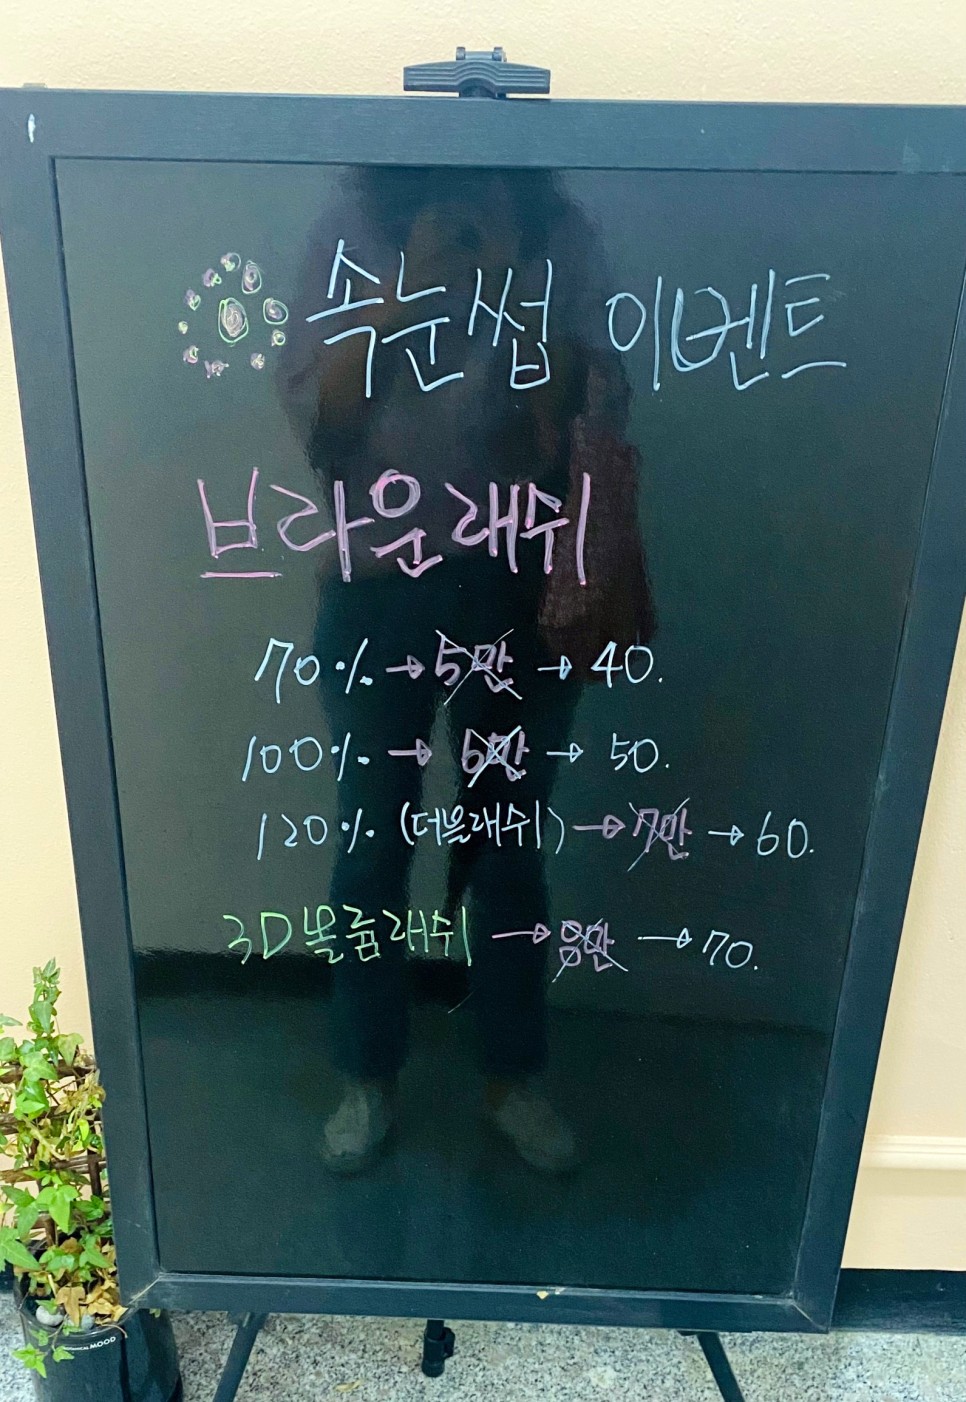 속눈썹 이벤트
브라운래쉬
70% → 5만 → 40.
100% → 6만 → 50.
120% (더블래쉬) → 7만 → 60.
3D볼륨래쉬 → 8만 → 70.
MOOD